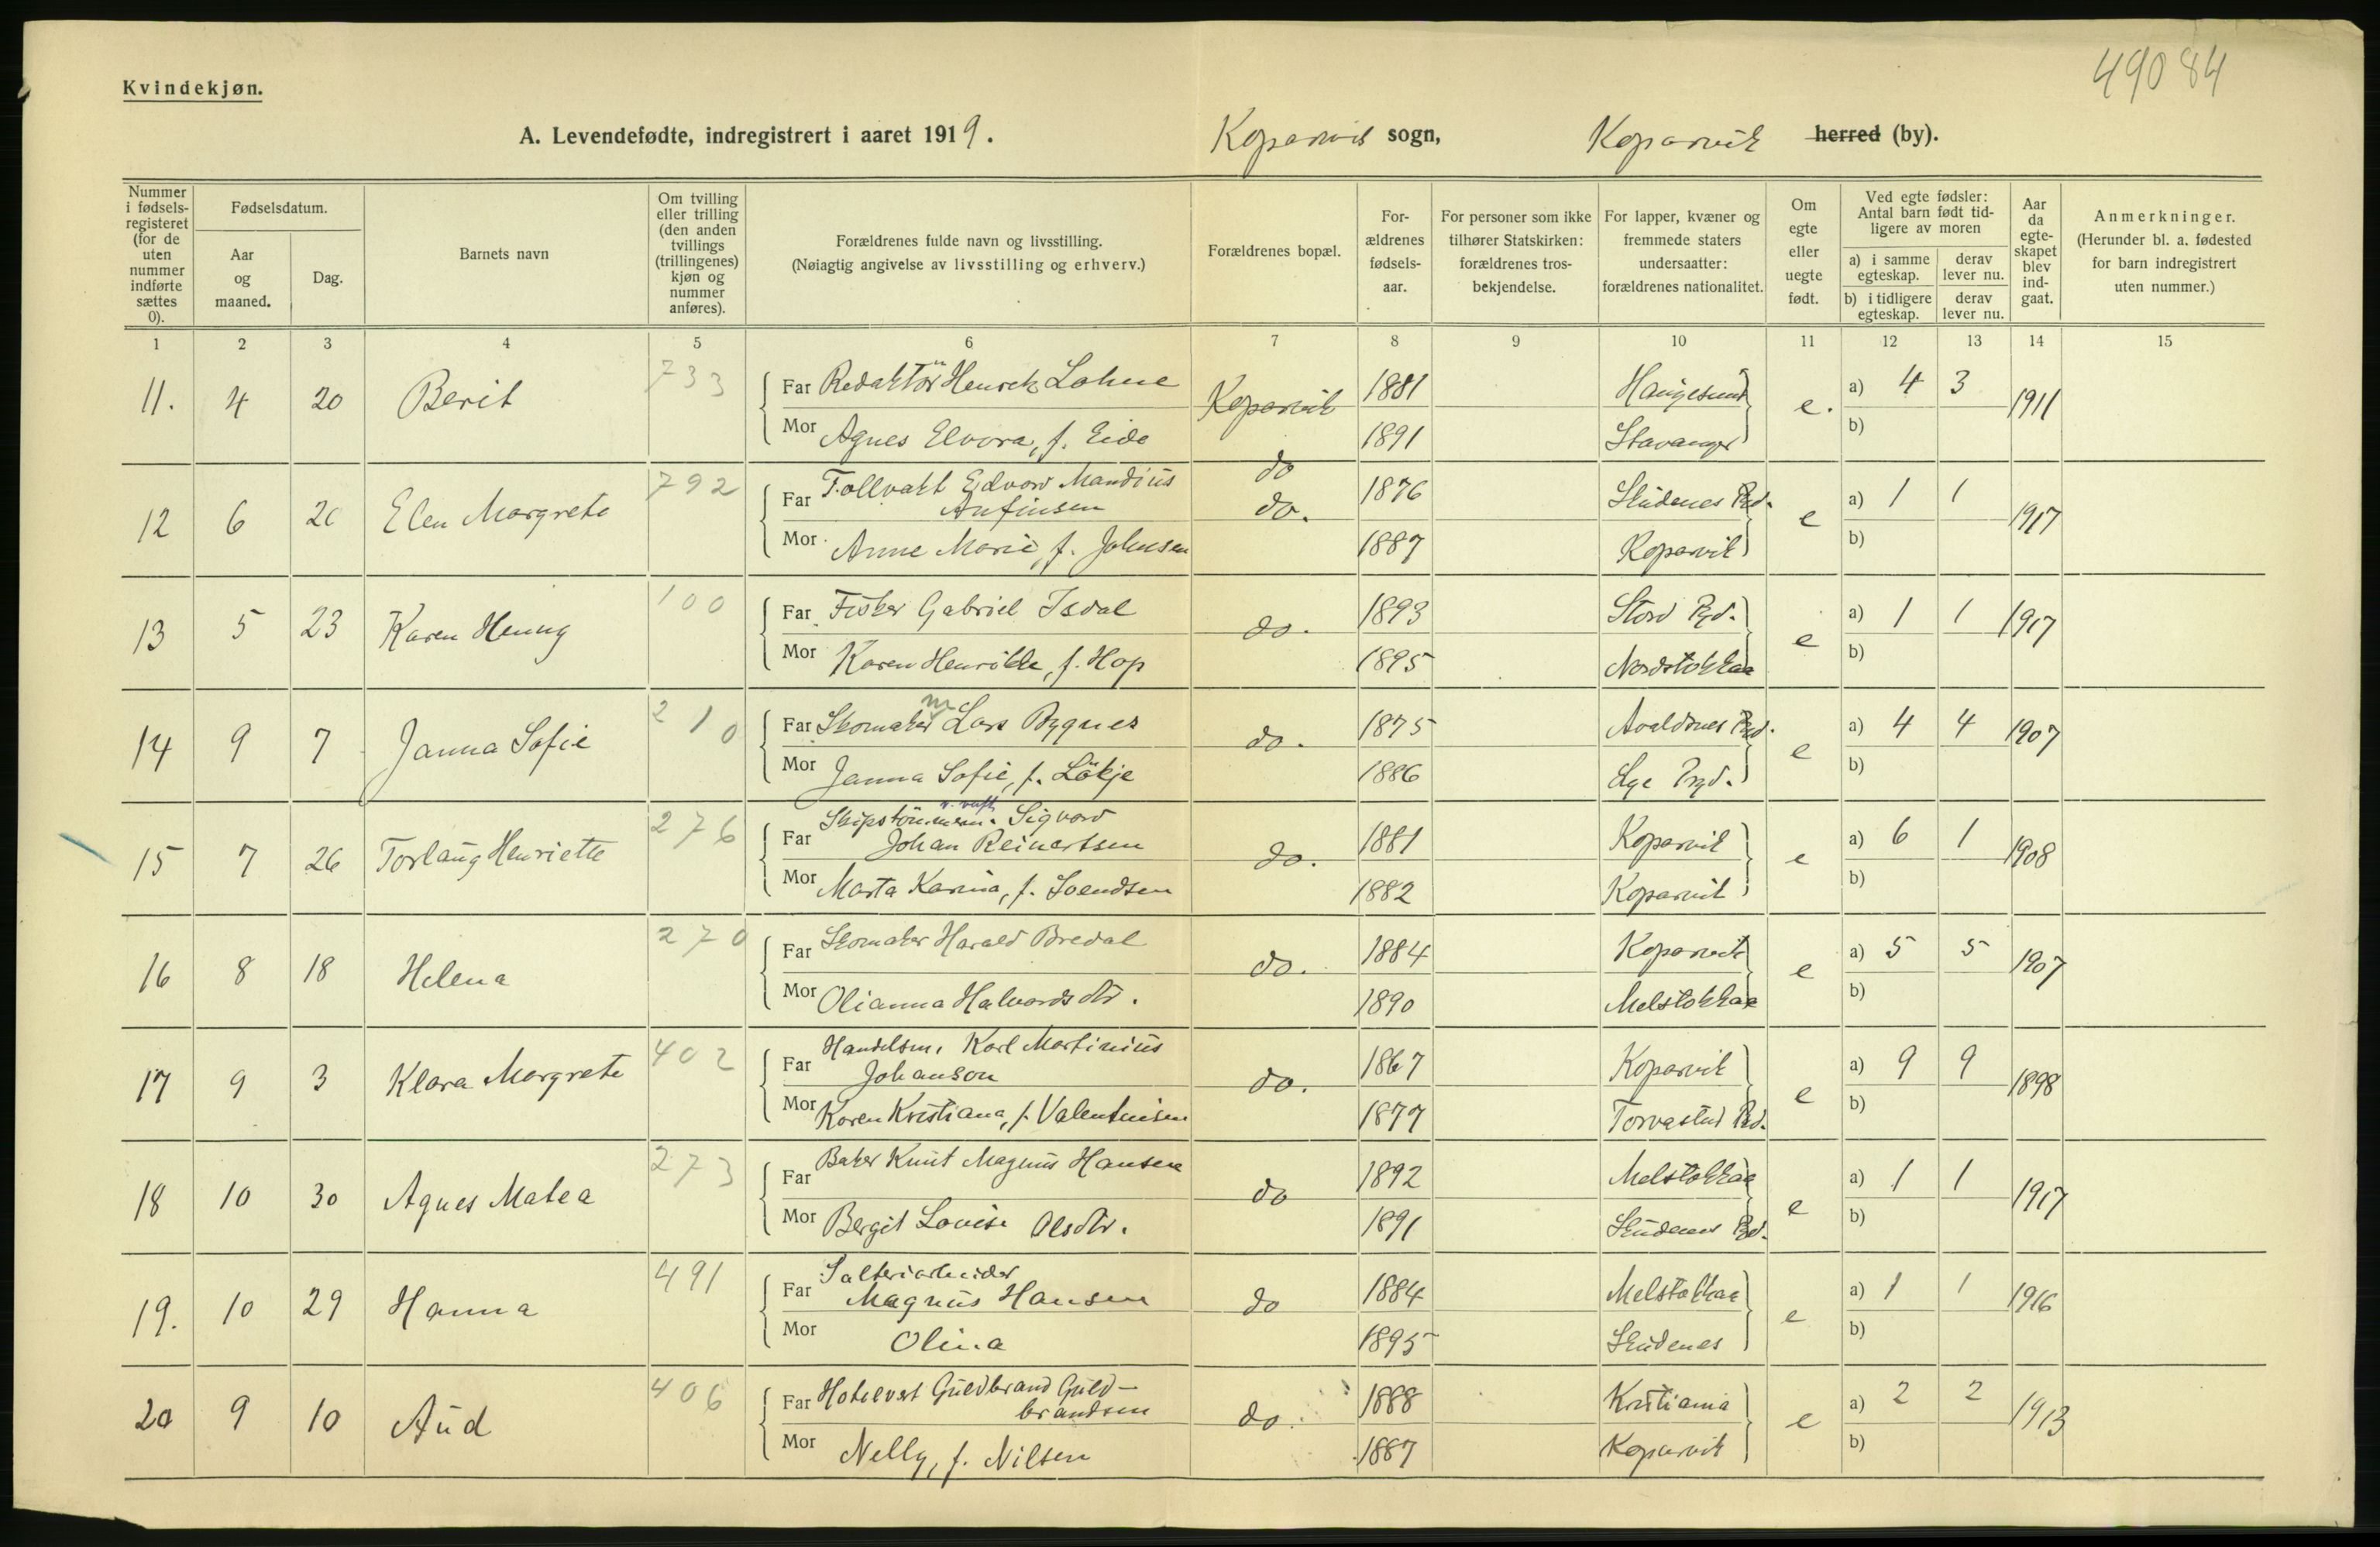 49084
Kvindekjøn.
A. Levendefødte, indregistrert i aaret 1919. Kopervik sogn, Kopervik herred (by).
Nummer i fødsels-registeret (for de uten nummer indførte sættes 0).
Fødselsdatum.
Aar og maaned.
Dag.
Barnets navn
Om tvilling eller trilling (den anden tvillings (trillingenes) kjøn og nummer anføres).
Forældrenes fulde navn og livsstilling.
(Nøiagtig angivelse av livsstilling og erhverv.)
Forældrenes bopæl.
For-ældrenes fødsels-aar.
For personer som ikke tilhører Statskirken: forældrenes tros-bekjendelse.
For lapper, kvæner og fremmede staters undersaatter: forældrenes nationalitet.
Om egte eller uegte født.
Ved egte fødsler: Antal barn født tid-ligere av moren
a) i samme egteskap.
derav lever nu.
b) i tidligere egteskap.
derav lever nu.
Aar da egte-skapet blev ind-gaat.
Anmerkninger.
(Herunder bl. a. fødested for barn indregistrert uten nummer.)
1 2 3 4 5 6 7 8 9 10 11 12 13 14 15
11. 4 20 Berit 733 Far Redaktör Henrek Lohne Kopervik 1881 Haugesund e. a) 4 3 1911
Mor Agnes Elvora, f. Eide 1891 Stavanger b)
do
12 6 20 Elen Margrete 792 Far Tollvakt Edvard Mandius Anfinsen do. 1876 Skudenes Pgd. e a) 1 1 1917
Mor Anne Marie, f. Johnsen 1887 Kopervik b)
13 5 23 Karen Henny 100 Far Fisker Gabriel Isdal do. 1893 Stord Pgd. e a) 1 1 1917
Mor Karen Henrikke, f. Hop 1895 Nordstokkaa b)
14 9 7 Janna Sofie 210 Far Skomaker m Lars Bygnes do. 1875 Avaldsnes Pgd. e a) 4 4 1907
Mor Janna Sofie, f. Lökje 1886 Lye Pgd. b)
15 7 26 Torlaug Henriette 276 Far Skipstömmerm. Sigvard Johan Reinertsen do. 1881 Kopervik e a) 6 1 1908
Mor Marta Karina, f. Svendsen 1882 Kopervik b)
16 8 18 Helena 270 Far Skomaker Harald Bredal do. 1884 Kopervik e a) 5 5 1907
Mor Olianna Halvardsdtr. 1890 Melstokkaa b)
17 9 3 Klara Margrete 402 Far Handelsm. Karl Martinius Johanson do. 1867 Kopervik e a) 9 9 1898
Mor Karen Kristiana, f. Valentinsen 1877 Torvastad Pgd. b)
18 10 30 Agnes Matea 273 Far Baker Knut Magnus Hansen do 1892 Melstokkaa e a) 1 1 1917
Mor Bergit Lovise Olsdtr. 1891 Skudenes Pgd. b)
19. 10 29 Hanna 491 Far Salteriarbeider Magnus Hansen do 1884 Melstokkaa e a) 1 1 1916
Mor Olina 1895 Skudenes b)
20 9 10 Aud 406 Far Hotelvert Guldbrand Guld-brandsen do. 1888 Kristiania e a) 2 2 1913
Mor Nelly, f. Nilsen 1887 Kopervik b)